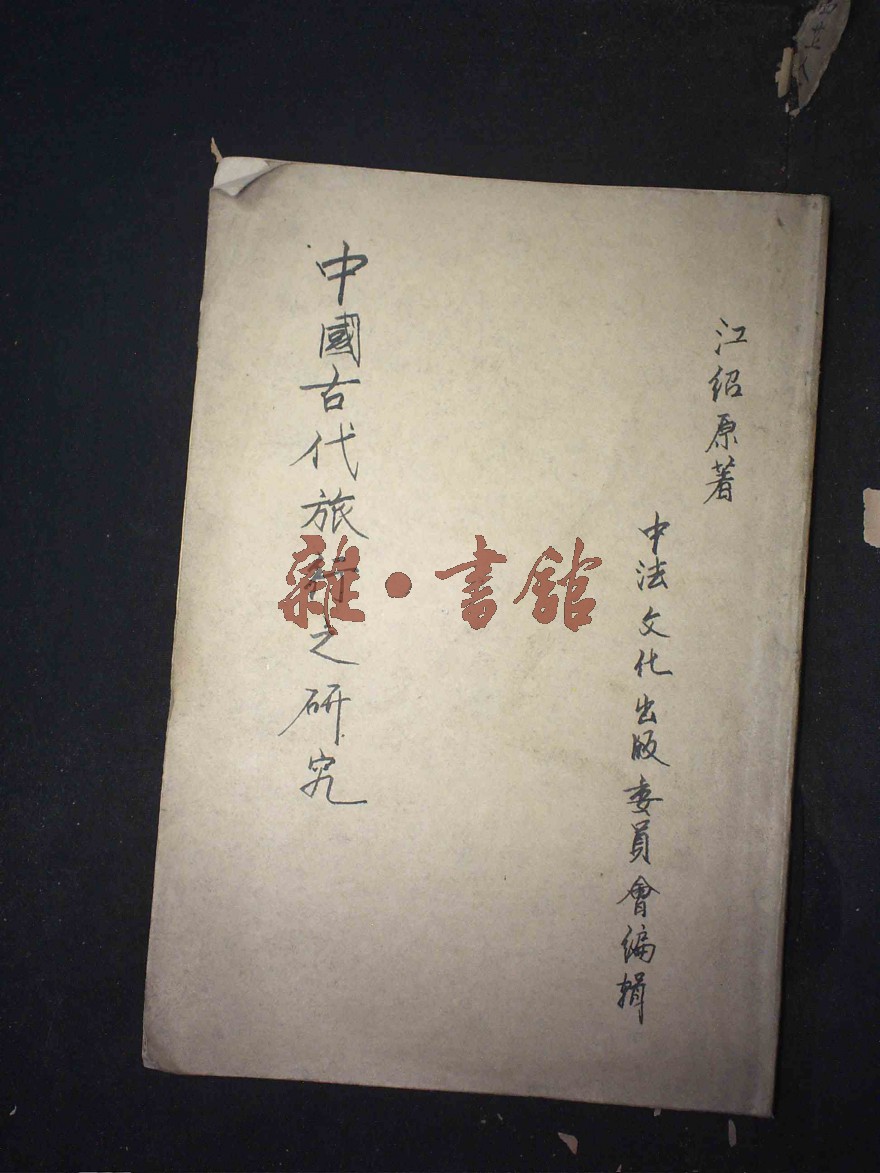 江绍原著
中法文化出版委員會编辑
中國古代旅行之研究
雜·書館